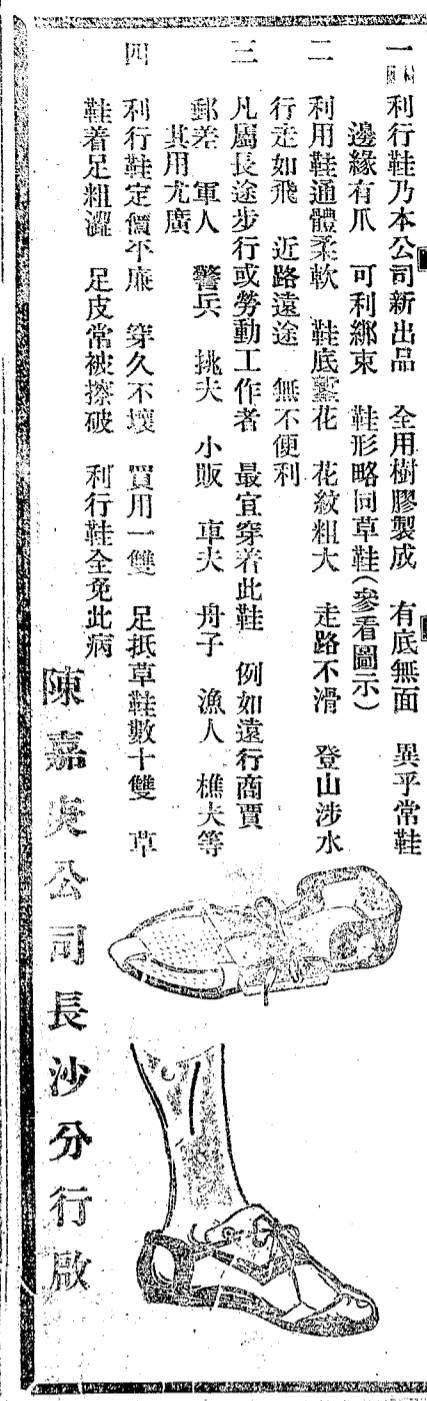 一 利行鞋乃本公司新出品 全用樹膠製成 有底無面 異乎常鞋
邊緣有爪 可利綁束 鞋形略同草鞋(參看圖示)
二 利用鞋通體柔軟 鞋底鏨花 花紋粗大 走路不滑 登山涉水
行走如飛 近路遠途 無不便利
三 凡屬長途步行或勞動工作者 最宜穿着此鞋 例如遠行商賈
郵差 軍人 警兵 挑夫 小販 車夫 舟子 漁人 樵夫等
其用尤廣
四 利行鞋定價平廉 穿久不壞 買用一雙 足抵草鞋數十雙 草
鞋着足粗澀 足皮常被擦破 利行鞋全免此病
陳嘉庚公司長沙分行啟